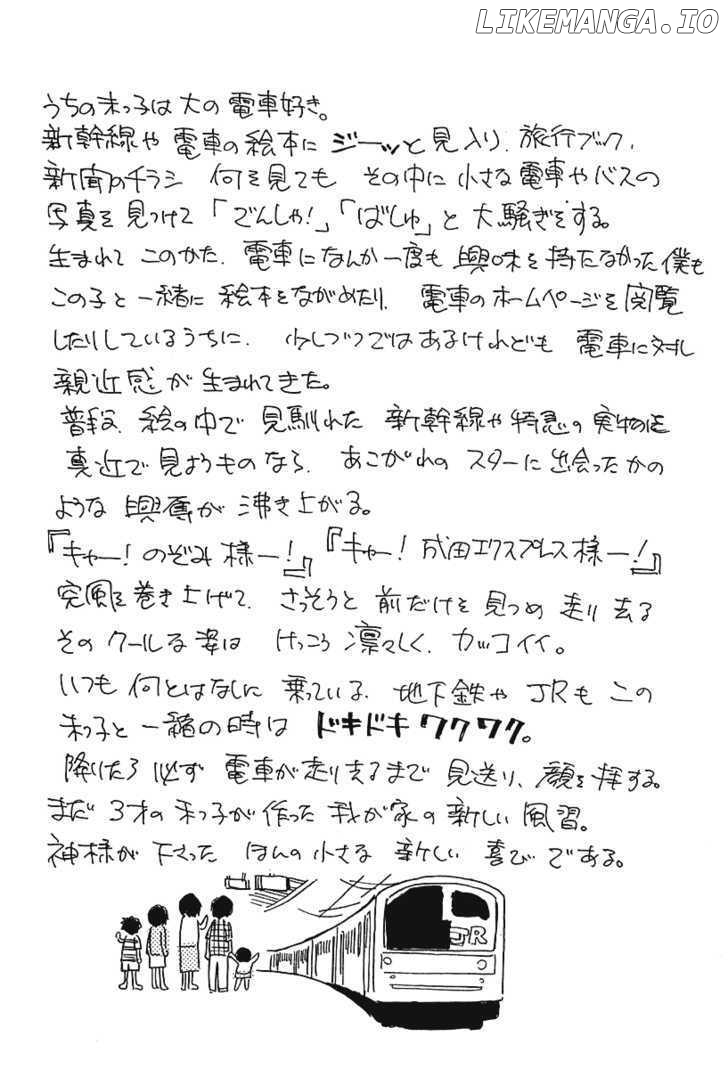 LIKEMANGA.IO
うちの末っ子は大の電車好き。
新幹線や電車の絵本にジーッと見入り、旅行ブック、
新聞のチラシ 何を見ても その中に小さな電車やバスの
写真を見つけて「でんしゃ!」「ばしゅ」と大騒ぎをする。
生まれてこのかた、電車になんか一度も興味を持たなかった僕も
この子と一緒に絵本をながめたり、電車のホームページを閲覧
したりしているうちに、少しづつではあるけれども電車に対し
親近感が生まれてきた。
普段、絵の中で見馴れた新幹線や特急の実物を
真近で見ようものなら、あこがれのスターに出会ったかの
ような興奮が沸き上がる。
『キャー!のぞみ様ー!』『キャー!成田エクスプレス様ー!』
突風を巻き上げて、さっそうと前だけを見つめ走り去る
そのクールな姿は けっこう凛々しく、カッコイイ。
いつも何とはなしに乗っている、地下鉄やJRもこの
末っ子と一緒の時はドキドキワクワク。
降りたら必ず電車が走り去るまで見送り、顔を拝する。
まだ3才の末っ子が作った我が家の新しい風習。
神様が下さった ほんの小さな新しい喜びである。
JR